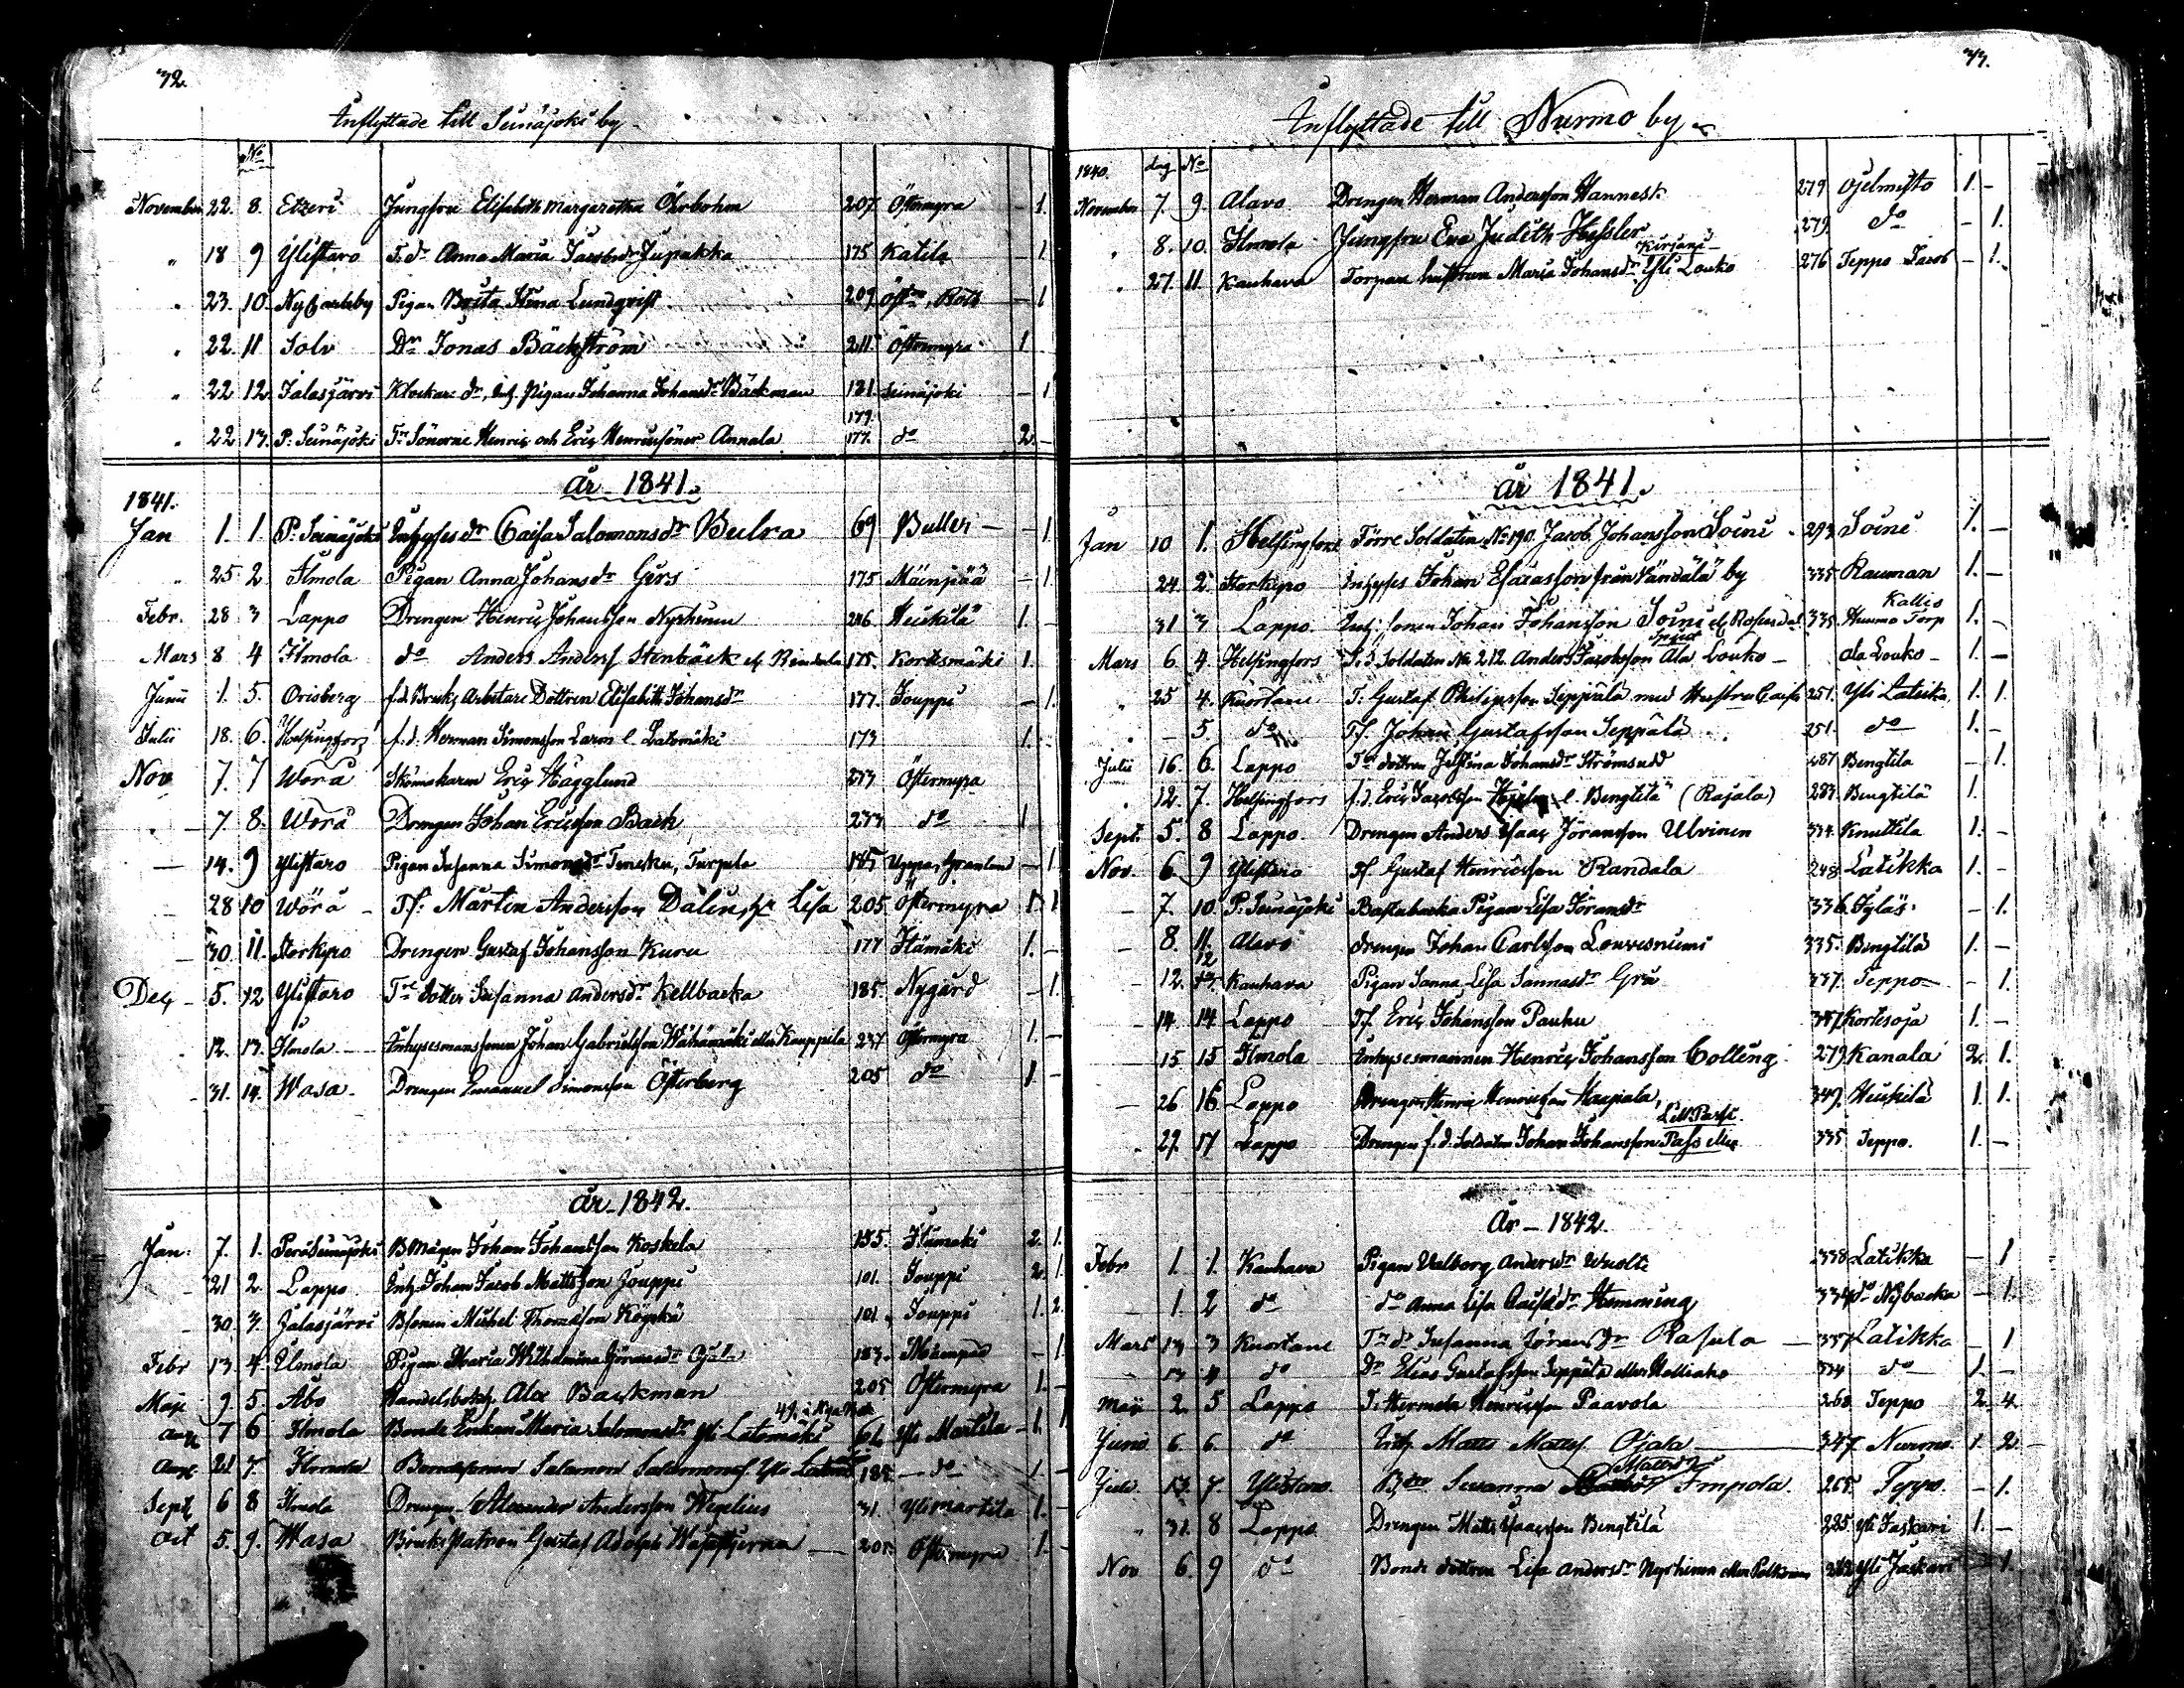 32.
Inflyttade till Seinäjoki by
No
November 22. 8. Etzeri Jungfru Elisabeth Margaretha Öhrbohm 207. Östermyra - 1.
" 18 9 Ylistaro T. dr Anna Maria Jacobsdr Jupakka 175 Katila - 1
" 23. 10. NyCarleby Pigan Brita Stina Lundqvist 209 - 1
" 22. 11 Solv Dr Jonas Bäckström 211. Östermyra 1
" 22 12. Jalasjärvi Klockare dr, Inh. Pigan Johanna Johansdr Bäckman 181. Seinäjoki - 1
179.
" 22 13. P. Seinäjoki Tr Sönerne Henric och Eric Henricsöner Annala 177. do 2. -
år 1841.
1841.
Jan 1. 1. P. Seinäjoki Inhyses dr Caisa Salomonsdr Bulra 69 Butleri - 1.
" 25. 2. Ilmola Pigan Anna Johansdr Gers 175 Mäenpää - 1.
Febr. 28 3 Lappo Drengen Henric Johansson Nyrhinen 246 Heikkilä 1. -
Mars 8 4 Ilmola do Anders Anderss Stenbäck el. Rindala 175. Kortesmäki 1.
Junii 1. 5. Orisberg f.d. Bruks Arbetare Dottren Elisabeth Johansdr 177. Jouppi - 1.
Julii 18. 6. Helsingfors f.d. Herman Simonsson Laron l. Latomäki 173 1.
Nov 7. 7 Wörå Skomakaren Eric Hägglund 273 Östermyra
- 7. 8. Wörå Drengen Johan Ericsson Back 273 do 1
- 14. 9 Ylistaro Pigan Susanna Simonsdr, Turpela 185 - 1
- 28 10 Wörå - Tf. Martin Andersson Dalin, h. Lisa 205 Östermyra 1. 1
- 30 11. Storkyro Drengen Gustaf Johansson Kuru 177 Itämäki 1. -
Dec - 5. 12 Ylistaro Tr Dotter Susanna Andersdr Kellbacka 185. Nygård - 1.
" 12. 13. Ilmola Inhysesmanssonen Johan Gabrielsson Wähämäki eller Kauppila 237 Östermyra 1. -
- 31. 14. Wasa. Drengen Emanuel Simonsson Österberg 205 do 1. -
år 1842.
Jan: 7. 1. Peräseinäjoki B. Mågen Johan Johansson Koskela 155. Itämäki 2. 1.
- 21 2. Lappo Inh. Johan Jacob Mattsson Jouppi 101. Jouppi 2. 1.
- 30. 3. Jalasjärvi Bsonen Michel Thomasson Köykkä 101. Jouppi 1. 2.
Febr 13. 4. Ilmola Pigan Maria Wilhelmina Göransdr Ojala 183. Mäenpää - 1
Maji 9 5. Åbo Handelsbokh. Alex Backman 205 Östermyra 1. -
Aug 7 6 Ilmola Bonde Enkan Maria Salomonsdr Yli Latomäki 61. Yli Martila - 1.
Aug. 21 7. Ilmola Bondesonen Salomon Salomons. Yli 184. - do 1. -
Sept 6 8 Ilmola Drengen Alexander Andersson Wegelius 31. Yli martila 1. -
Oct 5. 9. Wasa Bruks Patron Gustaf Adolph Wasastjerna 205. Östermyra 1. -
33.
Inflyttade till Nurmo by
1840. dag No
November 7. 9. Alavo Drengen Herman Andersson Hannesk 279 Ojelmisto 1. -
" 8. 10. Ilmola Jungfru Eva Judith Hessler 279. do - 1.
Kirjani
" 27. 11. Kauhava Torpare hustrun Maria Johansdr Yli Louko 276 Teppo Jacob - 1.
år 1841.
Jan 10 1. Helsingfors Förre Soldaten No 190. Jacob Johansson Soini 293. Soini 1. -
24. 2. Storkyro Inhyses Johan Esaiasson från Vändälä by 335. Rauman 1. -
Kallio
31 3 Lappo Inh. sonen Johan Johansson Soini el. Rosendal 335. Nurmo Torp 1. -
Mars 6 4. Helsingfors F.d. Soldaten No 212. Anders Jacobsson Ala Louko - ala Louko - 1. -
" 25 4. Kuortane T. Gustaf Philipsson Seppälä med Hustru Caisa 251. Yli Latikka 1. 1.
" - 5 do Tf. Johan Gustafsson Seppälä 251. do 1. -
Julii 16. 6. Lappo Tr dottren Justina Johansdr Strömsudd 287 Bengtila - 1.
" 12. 7. Helsingfors f.d. Eric Jacobsson l. Bengtilä (Rajala) 287. Bengtilä 1.
Sept. 5. 8 Lappo Drengen Anders Isaac Jöransson Ulvinen 334. Knuttila 1. -
Nov. 6. 9 Ylistaro Tf. Gustaf Henricsson Randala 248. Latikka 1. -
- 7. 10. P. Seinäjoki Backstubacka Pigan Lisa Göransdr 336. Jyläs - 1.
- 8. 11. Alavo drengen Johan Carlsson Louvesniemi 335. Bengtilä 1. -
12
- 12. 13. Kauhava Pigan Sanna Lisa Sannasdr Grå 337. Teppo - 1.
- 14. 14. Lappo Tf. Eric Johansson Pauhu 351 Kortesoja 1. -
15. 15 Ilmola Inhysesmannen Henric Johansson Colling 279. Kanala 2. 1.
- 26 16. Lappo Drengen Henric Henricsson Haapiala 349. Heikilä 1. 1.
" 29. 17 Lappo Drengen f.d. Soldaten Johan Johansson Pass eller 335 Teppo. 1. -
År - 1842.
Febr 1. 1. Kauhava Pigan Walborg Andersdr Wuolti 338 Latikka - 1
- 1. 2 do do Anna Lisa Caisasdr Hemming 334 do Nybacka - 1.
Mars 13 3 Kuortane Tr dr Susanna Jöransdr Rasula - 351 Latikka - 1
- 13 4 do Dr Elias Gustafsson Seppälä eller Kalliaho 334 do 1. -
Maij 2. 5 Lappo T. Hermela Henricsson Paavola 268. Teppo 2. 4.
Juni 6. 6. do Inh. Matts Mattss. Ojala 347. Nurmo. 1. 2.
Mattsdr
Juli 13. 7. Ylistaro. Susanna Impola. 265. Teppo. - 1.
" 31. 8 Lappo Drengen Matts Isaacsson Bengtila 285. Yli Jaskari 1. -
Nov 6. 9 do Bonde dottren Lisa Andersdr Nyrhinen eller 282 Yli Jaskari - 1.